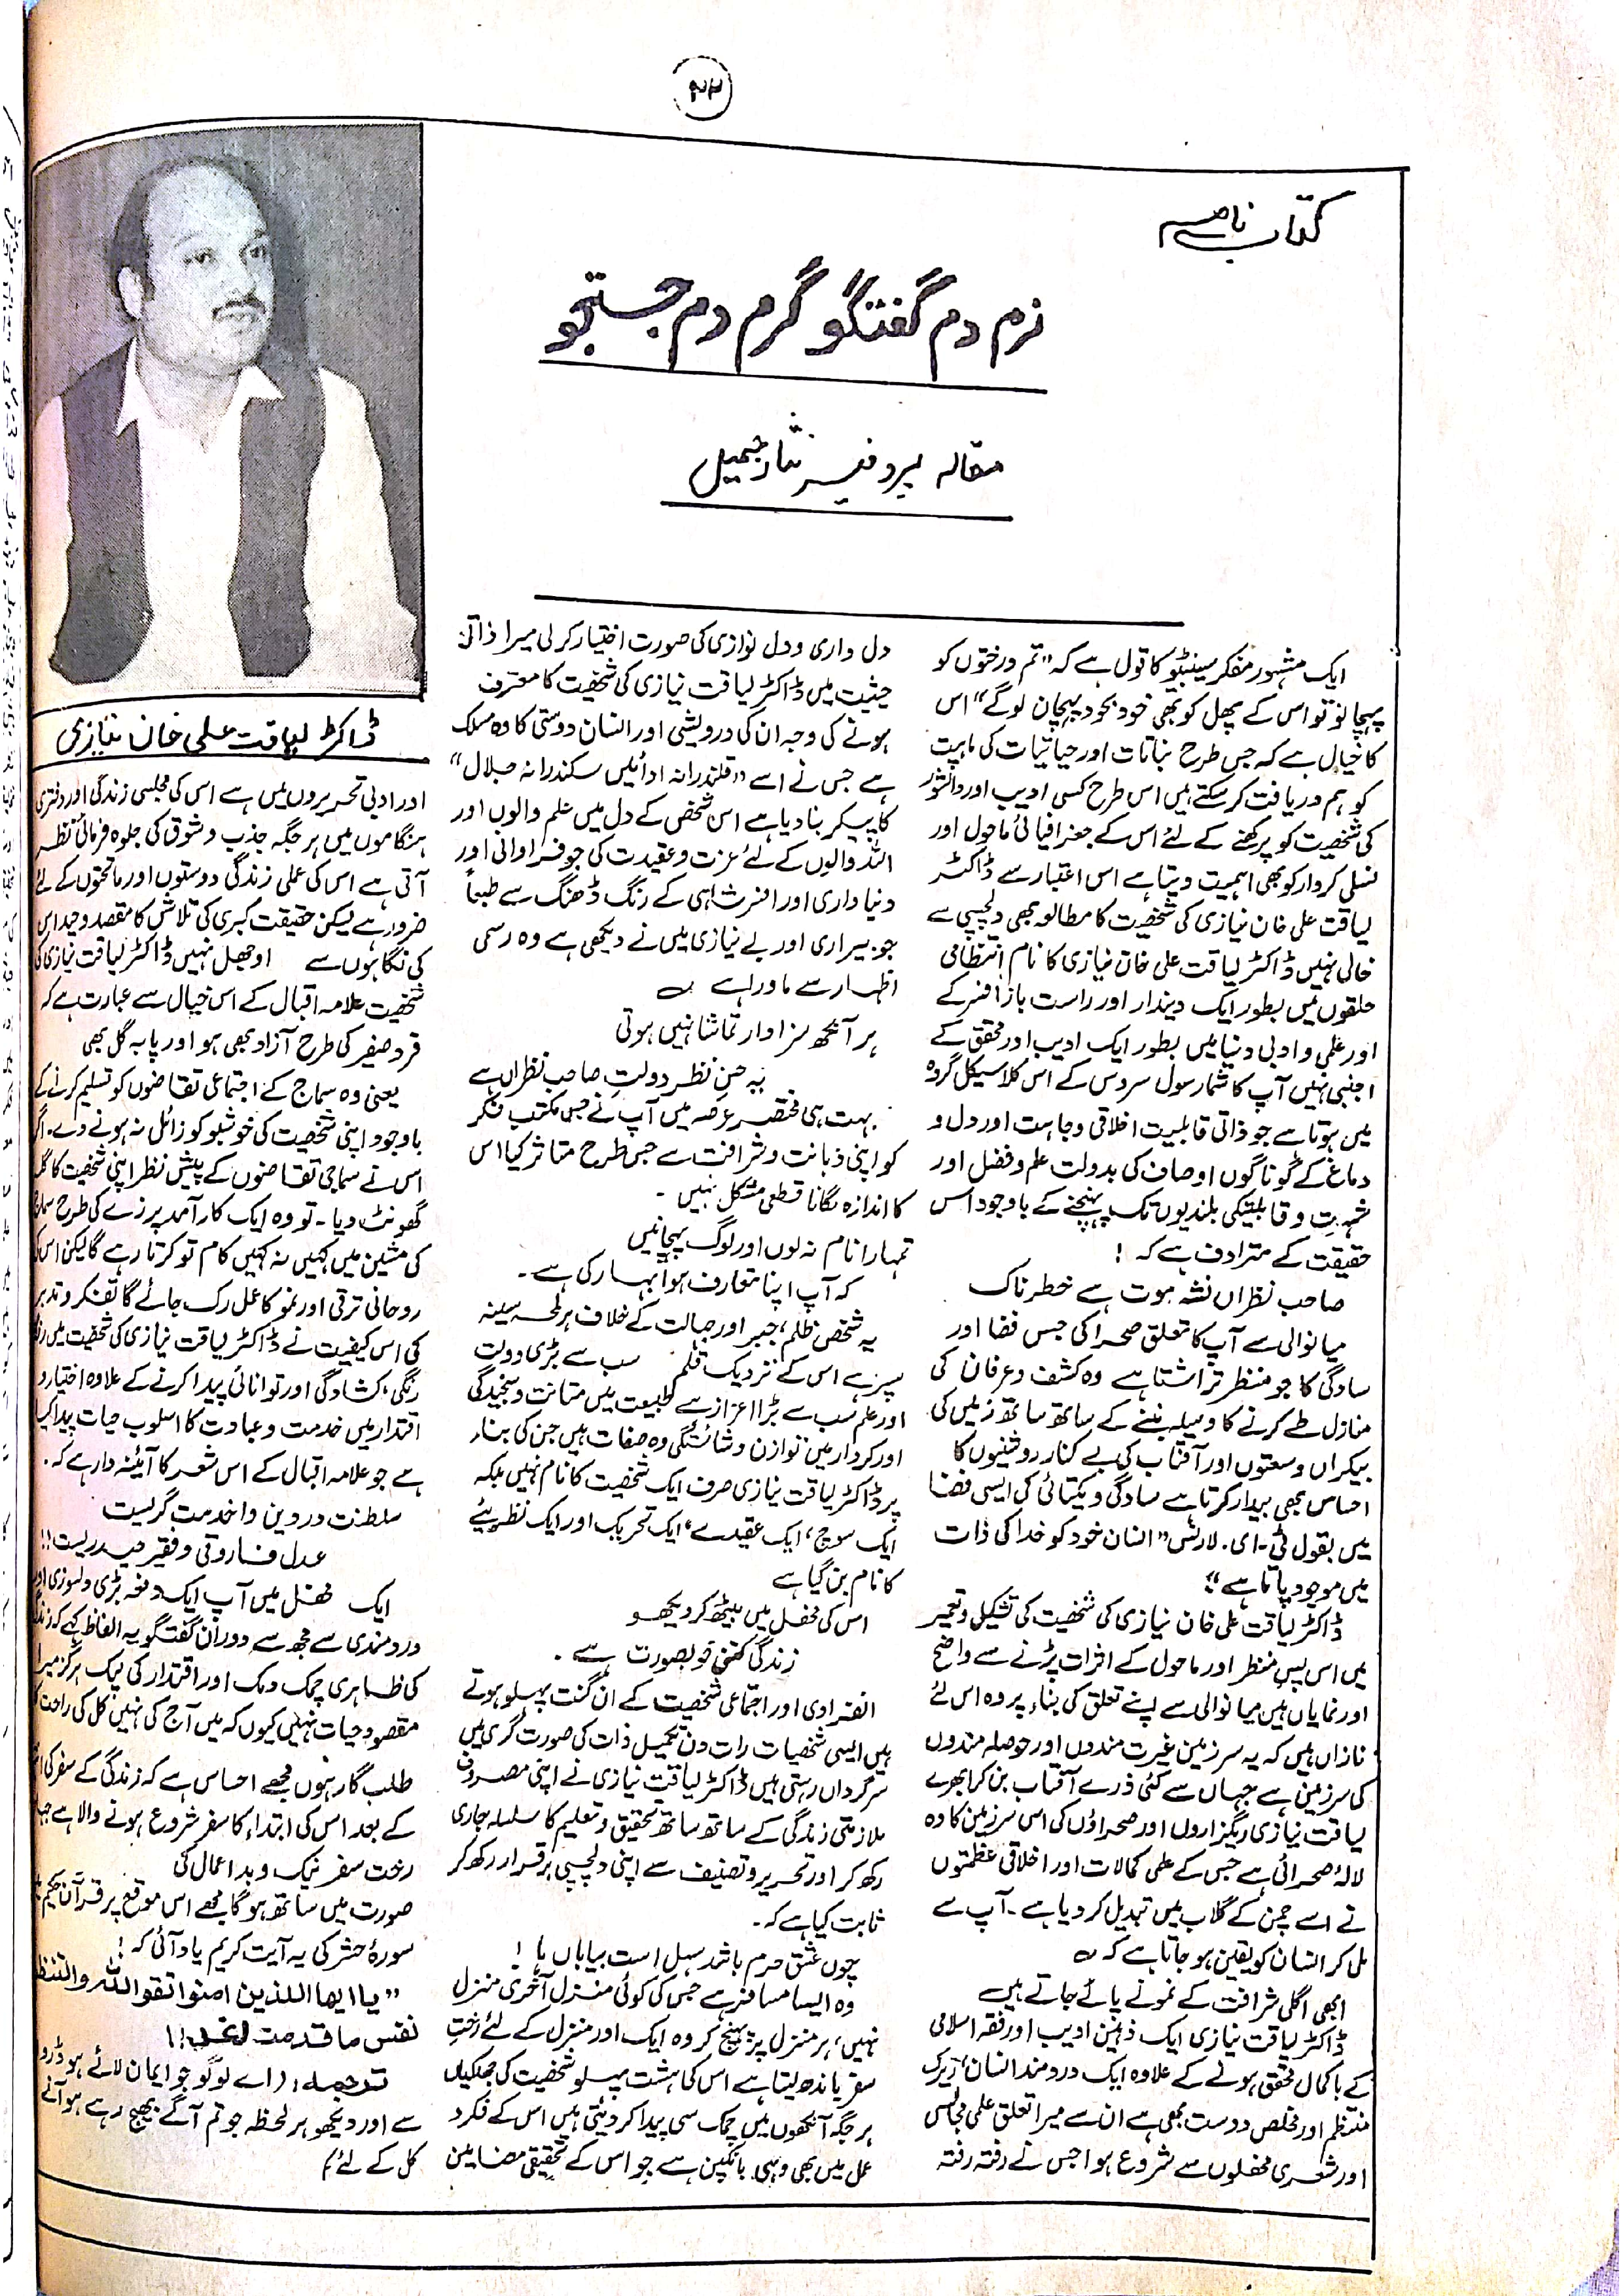 ۴۲
کتاب نامہ
نرم دم گفتگو گرم دم جستجو
مقالہ پروفیسر نثار جمیل
ایک مشہور مفکر سینٹیو کا قول ہے کہ "تم درختوں کو
پہچانو تو اس کے پھل کو بھی خود بخود پہچان لوگے" اس
کا خیال ہے کہ جس طرح نباتات اور حیاتیات کی ماہیت
کو ہم دریافت کر سکتے ہیں اس طرح کسی ادیب اور دانشور
کی شخصیت کو پرکھنے کے لئے اس کے جغرافیائی ماحول اور
نسلی کردار کو بھی اہمیت دیتا ہے اس اعتبار سے ڈاکٹر
لیاقت علی خان نیازی کی شخصیت کا مطالعہ بھی دلچسپی سے
خالی نہیں ڈاکٹر لیاقت علی خان نیازی کا نام انتظامی
حلقوں میں بطور ایک دیندار اور راست باز افسر کے
اور علمی و ادبی دنیا میں بطور ایک ادیب اور محقق کے
اجنبی نہیں آپ کا شمار سول سروس کے اس کلاسیکل گروہ
میں ہوتا ہے جو ذاتی قابلیت اخلاقی وجاہت اور دل و
دماغ کے گوناگوں اوصاف کی بدولت علم و فضل اور
شہرت و قابلیتکی بلندیوں تک پہنچنے کے باوجود اس
حقیقت کے مترادف ہے کہ !
صاحب نظراں نشہ قوت ہے خطرناک
میانوالی سے آپ کا تعلق صحرا کی جس فضا اور
سادگی کا جو منظر تراشتا ہے وہ کشف و عرفان کی
منازل طے کرنے کا وسیلہ بننے کے ساتھ ساتھ زمیں کی
بیکراں وسعتوں اور آفتاب کی بے کنار روشنیوں کا
احساس بھی بیدار کرتا ہے سادگی و یکتائی کی ایسی فضا
میں بقول ٹی۔ای۔لارنس "انسان خود کو خدا کی ذات
میں موجود پاتا ہے"
ڈاکٹر لیاقت علی خان نیازی کی شخصیت کی تشکیل و تعمیر
میں اس پس منظر اور ماحول کے اثرات پڑنے سے واضح
اور نمایاں ہیں میانوالی سے اپنے تعلق کی بناء پر وہ اس لئے
نازاں ہیں کہ یہ سرزمین غیرت مندوں اور حوصلہ مندوں
کی سرزمین ہے جہاں سے کئی ذرے آفتاب بن کر ابھرے
لیاقت نیازی ریگزاروں اور صحراؤں کی اس سرزمین کا وہ
لالۂ صحرائی ہے جس کے علمی کمالات اور اخلاقی عظمتوں
نے اسے چمن کے گلاب میں تبدیل کر دیا ہے۔ آپ سے
مل کر انسان کو یقین ہو جاتا ہے کہ
ابھی اگلی شرافت کے نمونے پائے جاتے ہیں
ڈاکٹر لیاقت نیازی ایک ذہین ادیب اور فقہ اسلامی
کے باکمال محقق ہونے کے علاوہ ایک دردمند انسان، زیرک
منتظم اور مخلص دوست بھی ہے ان سے میرا تعلق علمی مجالس
اور شعری محفلوں سے شروع ہوا جس نے رفتہ رفتہ
دل داری و دل نوازی کی صورت اختیار کر لی میرا ذاتی
حیثیت میں ڈاکٹر لیاقت نیازی کی شخصیت کا معترف
ہونے کی وجہ ان کی درویشی اور انسان دوستی کا وہ مسلک
ہے جس نے اسے "قلندرانہ ادائیں سکندرانہ جلال"
کا پیکر بنا دیا ہے اس شخص کے دل میں علم والوں اور
اللہ والوں کے لئے عزت و عقیدت کی جو فراوانی اور
دنیا داری اور افسر شاہی کے رنگ ڈھنگ سے طبعاً
جو بیزاری اور بے نیازی میں نے دیکھی ہے وہ رسمی
اظہار سے ماورا ہے
ہر آنکھ سزاوار تماشا نہیں ہوتی
یہ حسنِ نظر دولتِ صاحب نظراں ہے
بہت ہی مختصر عرصہ میں آپ نے جس مکتب فکر
کو اپنی ذہانت و شرافت سے جس طرح متاثر کیا اس
کا اندازہ لگانا قطعی مشکل نہیں۔
تمہارا نام نہ لوں اور لوگ پہچانیں
کہ آپ اپنا تعارف ہوا بہار کی ہے۔
یہ شخص ظلم، جبر اور جہالت کے خلاف ہر لمحہ سینہ
سپر ہے اس کے نزدیک قلم سب سے بڑی دولت
اور علم سب سے بڑا اعزاز ہے طبیعت میں متانت و سنجیدگی
اور کردار میں توازن و شائستگی وہ صفات ہیں جن کی بناء
پر ڈاکٹر لیاقت نیازی صرف ایک شخصیت کا نام نہیں بلکہ
ایک سوچ، ایک عقیدے، ایک تحریک اور ایک نظریئے
کا نام بن گیا ہے
اس کی محفل میں بیٹھ کر دیکھو
زندگی کتنی خوبصورت ہے۔
انفرادی اور اجتماعی شخصیت کے ان گنت پہلو ہوتے
ہیں ایسی شخصیات رات دن تکمیل ذات کی صورت گری میں
سرگرداں رہتی ہیں ڈاکٹر لیاقت نیازی نے اپنی مصروف
ملازمتی زندگی کے ساتھ ساتھ تحقیق و تعلیم کا سلسلہ جاری
رکھ کر اور تحریر و تصنیف سے اپنی دلچسپی برقرار رکھ کر
ثابت کیا ہے کہ۔
چوں عشق حرم باشد سہل است بیاباں ہا !
وہ ایسا مسافر ہے جس کی کوئی منزل آخری منزل
نہیں، ہر منزل پر پہنچ کر وہ ایک اور منزل کے لئے رختِ
سفر باندھ لیتا ہے اس کی ہشت پہلو شخصیت کی جھلکیاں
ہر جگہ آنکھوں میں چمک سی پیدا کر دیتی ہیں اس کے فکر و
عمل میں بھی وہی بانکپن ہے جو اس کے تحقیقی مضامین
ڈاکٹر لیاقت علی خان نیازی
اور ادبی تحریروں میں ہے اس کی مجلسی زندگی اور دفتری
ہنگاموں میں ہر جگہ جذب و شوق کی جلوہ فرمائی نظر
آتی ہے اس کی عملی زندگی دوستوں اور ماتحتوں کے لئے
ضرور ہے لیکن حقیقت کبری کی تلاش کا مقصد وحید اس
کی نگاہوں سے اوجھل نہیں ڈاکٹر لیاقت نیازی کی
شخصیت علامہ اقبال کے اس خیال سے عبارت ہے کہ
فرد صفیر کی طرح آزاد بھی ہو اور پابہ گل بھی
یعنی وہ سماج کے اجتماعی تقاضوں کو تسلیم کرنے کے
باوجود اپنی شخصیت کی خوشبو کو زائل نہ ہونے دے۔ اگر
اس نے سماجی تقاضوں کے پیش نظر اپنی شخصیت کا گلا
گھونٹ دیا۔ تو وہ ایک کارآمد پرزے کی طرح سماج
کی مشین میں کہیں نہ کہیں کام تو کرتا رہے گا لیکن اس کی
روحانی ترقی اور نمو کا عمل رک جائے گا تفکر و تدبر
کی اس کیفیت نے ڈاکٹر لیاقت نیازی کی شخصیت میں
رنگی، کشادگی اور توانائی پیدا کرنے کے علاوہ اختیار و
اقتدار میں خدمت و عبادت کا اسلوب حیات پیدا کیا
ہے جو علامہ اقبال کے اس شعر کا آئینہ دار ہے کہ۔
سلطنت در دین ما خدمت گریست
عدل فاروقی و فقیر حیدریست!!
ایک محفل میں آپ ایک دفعہ بڑی دلسوزی اور
دردمندی سے مجھ سے دوران گفتگو یہ الفاظ کہے کہ زندگی
کی ظاہری چمک دمک اور اقتدار کی لیک ہرگز میرا
مقصود حیات نہیں کیوں کہ میں آج کی نہیں کل کی راحت کا
طلب گار ہوں مجھے احساس ہے کہ زندگی کے سفر کی
کے بعد اس کی ابتداء کا سفر شروع ہونے والا ہے جہاں
رخت سفر نیک و بد اعمال کی
صورت میں ساتھ ہو گا مجھے اس موقع پر قرآن حکیم کی
سورۂ حشر کی یہ آیت کریم یاد آئی کہ !
"یا ایھا اللذین امنوا تقو اللہ والتنظر
نفس ما قدمت لغد !!
ترجمہ: (اے لوگو جو ایمان لائے ہو ڈرو
سے اور دیکھو ہر لحظہ جو تم آگے بھیج رہے ہو آنے
کل کے لئے)